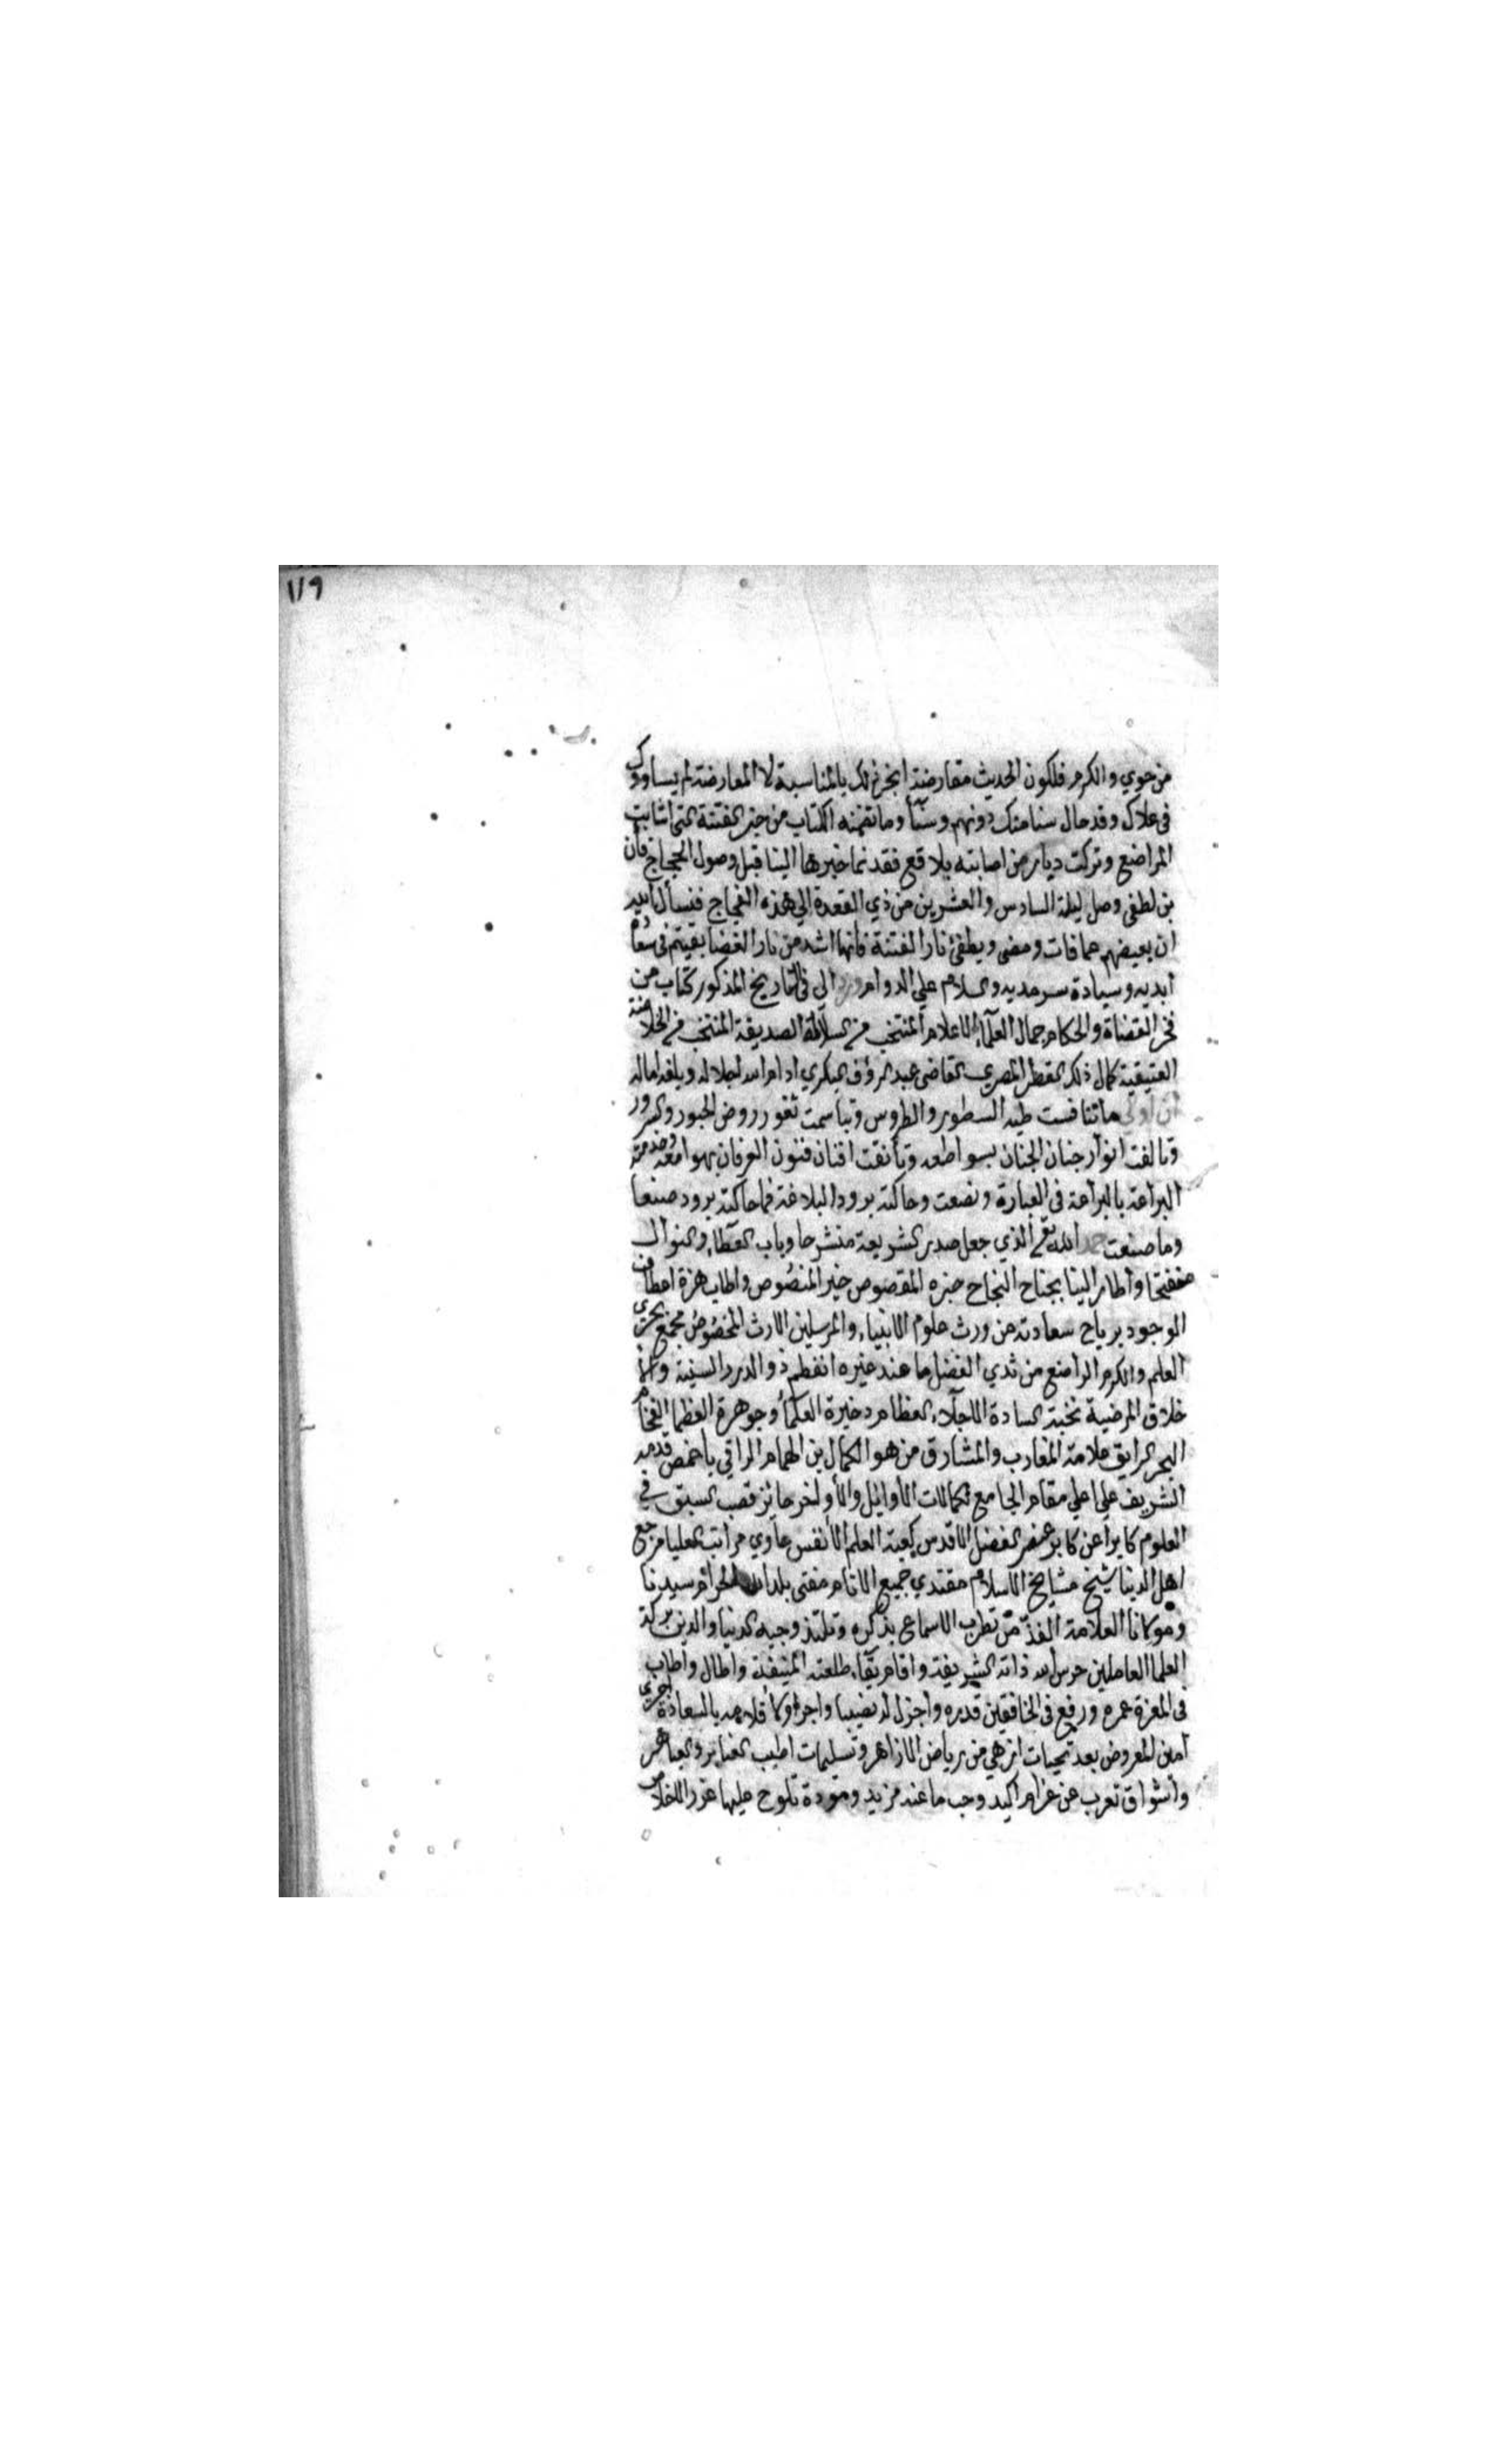 ١١٩
من حوي والكرم فلكون الحديث مقارضة انجز ذلك بالمناسبة لا المعارضة لم يساووك
في علاك وقد حال سنا منك دونهم وسنآ وما تضمنه الكتاب من خبر الفتنة التي اشابت
المراضع وتركت ديار من اصابته بلاقع فقد نما خبرها الينا قبل وصول الحجاج فان
بن لطفي وصل ليلة السادس والعشرين من ذي القعدة الي هذه الفجاج فنسأل الله
ان يعيضهم عما فات ومضي ويطفئ نار الفتنة فانها اشد من نار الغضا بقيتم في سعادة
ابديه وسيادة سرمديه والسلام علي الدوام ورد الي في التاريخ المذكور كتاب من
فخر القضاة والحكام جمال العلماء الاعلام المنتخب من السلالة الصديقية المنتخب من الخلاصة
العتيقية كمال ذلك القطر المصري القاضي عبد الرؤف البكري ادام الله اجلاله وبلغه اماله
ان اولي ما تنافست طيه السطور والطروس وتباسمت ثغور روض الحبور والسرور
وتالفت انوار جنان الجنان بسواطعه وتأنقت افنان فنون العرفان بهوامعه وخدمته
البراعة بالبراعة في العبارة ونصعت وحاكته برود البلاغة فما حاكته برود صنعا
وما صنعت حمد الله تعالي الذي جعل صدر الشريعة منشرحا وباب العطاء والنوال
منفتحا واطار الينا بجناح النجاح خبره المقصوص خير المنصوص واطاب هزة اعطاف
الوجود برياح سعادته من ورث علوم الانبياء والمرسلين الارث المخصوص مجمع بحري
العلم والكرم الراضع من ثدي الفضل ما عند غيره انفطم ذو الدرر السنية والا
خلاق المرضية نخبة السادة الاجلاء العظام ذخيرة العلماء وجوهرة العظما الفخام
البحر الرايق علامة المغارب والمشارق من هو الكمال بن الهمام الراقي باخمص قدمه
الشريف علي اعلي مقام الجامع لكمالات الاوايل والأواخر حائز قصب السبق في
العلوم كابراً عن كابر عنصر الفضل الاقدس كعبة العلم الأنفس حاوي مراتب العليا مرجع
اهل الدنيا شيخ مشايخ الاسلام مقتدي جميع الانام مفتي بلد الله الحرام سيدنا
ومولانا العلامة الفذ من تطرب الاسماع بذكره وتلتذ وجيه الدنيا والدين بركة
العلما العاملين حرس الله ذاته الشريفة واقام بقاء طلعته المنيفة واطال واطاب
في المعزة عمره ورفع في الخافقين قدره واجزل له نصيبا واجرا ولا اقلامه بالسعادة اجري
امين المعروض بعد تحيات ازهي من رياض الازاهر وتسليمات اطيب العنابر والعباهر
واشواق تعرب عن غرام اكيد وحب ما عنه مزيد ومودة تلوح عليها غرر الاخلاص